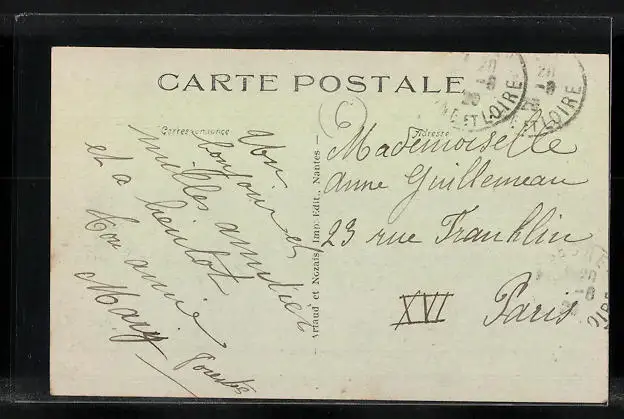 CARTE POSTALE
Correspondance
Adresse
Un
bonjour et
milles amitiés
et a bientot
Ton amie
Mary
Artaud et Nozais, Imp.-Edit., Nantes
Mademoiselle
Anne Guillemeau
23 rue Franklin
XVI Paris
20
-8
ET LOIRE
20
-8
ET LOIRE
20
-8